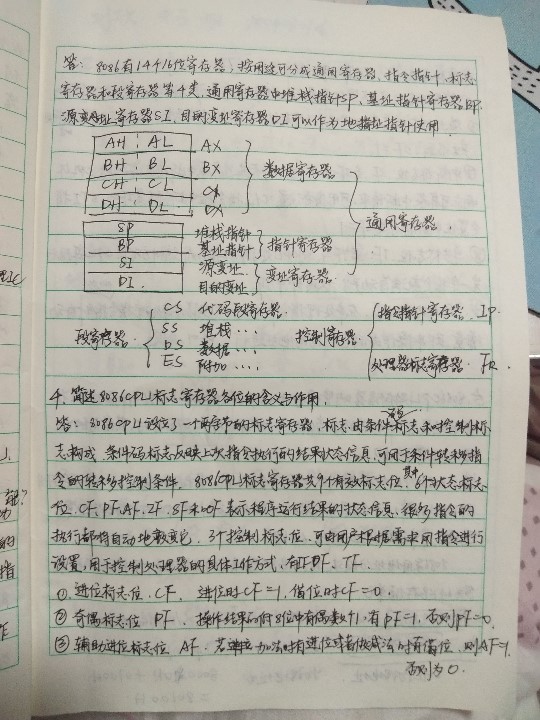 答: 8086有14个16位寄存器, 按用途可分成通用寄存器, 指令指针, 标志
寄存器和段寄存器等4类, 通用寄存器中堆栈指针SP, 基址指针寄存器BP
源变址寄存器SI, 目的变址寄存器DI可以作为地址指针使用.
AH AL AX
BH BL BX 数据寄存器
CH CL CX
DH DL DX
通用寄存器.
SP 堆栈指针
BP 基址指针 指针寄存器
SI 源变址 变址寄存器
DI 目的变址
CS 代码段寄存器 指令指针寄存器 IP.
段寄存器 SS 堆栈… 控制寄存器
DS 数据…
ES 附加… 处理器标志寄存器 FR.
4. 简述8086CPU标志寄存器各位的含义与作用.
答: 8086CPU设立了一个两字节的标志寄存器, 标志由条件码标志和控制标
志构成, 条件码标志反映上次指令执行的结果状态信息, 可用于条件转移指
令的转移控制条件. 8086CPU标志寄存器共9个有效标志位, 其中6个状态标志
位, CF、PF、AF、ZF、SF和OF 表示程序运行结果的状态信息, 很多指令的
执行都将自动地改变它, 3个控制标志位, 可由用户根据需求用指令进行
设置, 用于控制处理器的具体工作方式, 有IF DF、TF.
①. 进位标志位, CF, 进位时CF=1, 借位时CF=0.
② 奇偶标志位 PF. 操作结果的低8位中有偶数个1. 有PF=1, 否则PF=0.
③ 辅助进位标志位 AF. 若 加法时有进位或者做减法时有借位, 则AF=1,
否则为0.